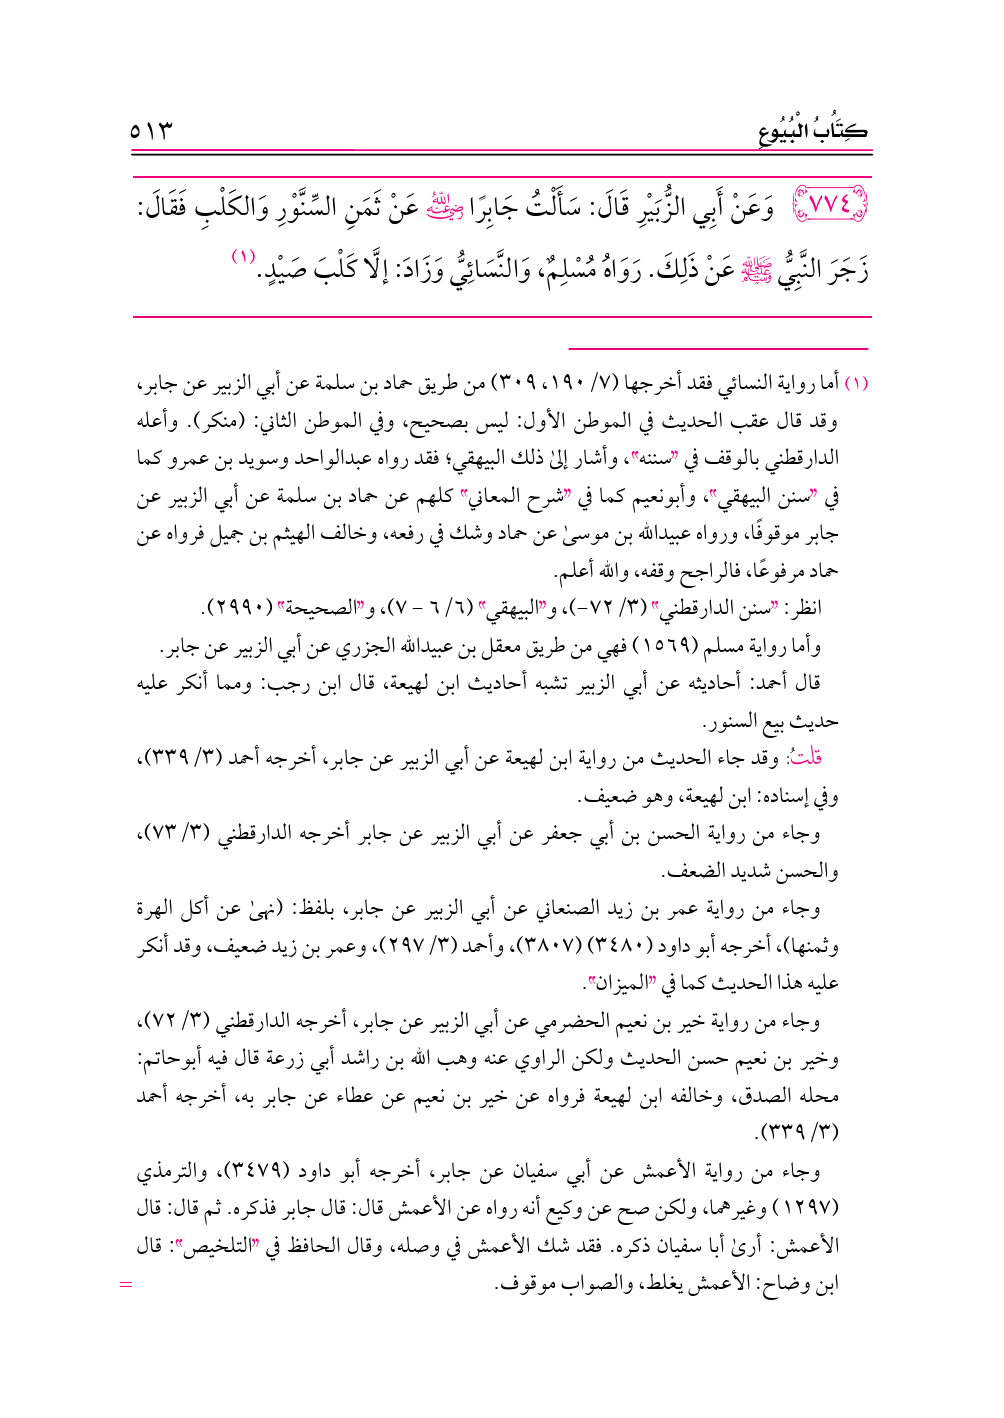 كِتَابُ الْبُيُوعِ ٥١٣
٧٧٤ وَعَنْ أَبِي الزُّبَيْرِ قَالَ: سَأَلْتُ جَابِرًا ﵁ عَنْ ثَمَنِ السِّنَّوْرِ وَالكَلْبِ فَقَالَ:
زَجَرَ النَّبِيُّ ﷺ عَنْ ذَلِكَ. رَوَاهُ مُسْلِمٌ، وَالنَّسَائِيُّ وَزَادَ: إلَّا كَلْبَ صَيْدٍ.(١)
(١) أما رواية النسائي فقد أخرجها (٧/ ١٩٠، ٣٠٩) من طريق حماد بن سلمة عن أبي الزبير عن جابر،
وقد قال عقب الحديث في الموطن الأول: ليس بصحيح، وفي الموطن الثاني: (منكر). وأعله
الدارقطني بالوقف في "سننه"، وأشار إلىٰ ذلك البيهقي؛ فقد رواه عبدالواحد وسويد بن عمرو كما
في "سنن البيهقي"، وأبونعيم كما في "شرح المعاني" كلهم عن حماد بن سلمة عن أبي الزبير عن
جابر موقوفًا، ورواه عبيدالله بن موسىٰ عن حماد وشك في رفعه، وخالف الهيثم بن جميل فرواه عن
حماد مرفوعًا، فالراجح وقفه، والله أعلم.
انظر: "سنن الدارقطني" (٣/ ٧٢-)، و"البيهقي" (٦/ ٦ - ٧)، و"الصحيحة" (٢٩٩٠).
وأما رواية مسلم (١٥٦٩) فهي من طريق معقل بن عبيدالله الجزري عن أبي الزبير عن جابر.
قال أحمد: أحاديثه عن أبي الزبير تشبه أحاديث ابن لهيعة، قال ابن رجب: ومما أنكر عليه
حديث بيع السنور.
قلتُ: وقد جاء الحديث من رواية ابن لهيعة عن أبي الزبير عن جابر، أخرجه أحمد (٣/ ٣٣٩)،
وفي إسناده: ابن لهيعة، وهو ضعيف.
وجاء من رواية الحسن بن أبي جعفر عن أبي الزبير عن جابر أخرجه الدارقطني (٣/ ٧٣)،
والحسن شديد الضعف.
وجاء من رواية عمر بن زيد الصنعاني عن أبي الزبير عن جابر، بلفظ: (نهىٰ عن أكل الهرة
وثمنها)، أخرجه أبو داود (٣٤٨٠) (٣٨٠٧)، وأحمد (٣/ ٢٩٧)، وعمر بن زيد ضعيف، وقد أنكر
عليه هذا الحديث كما في "الميزان".
وجاء من رواية خير بن نعيم الحضرمي عن أبي الزبير عن جابر، أخرجه الدارقطني (٣/ ٧٢)،
وخير بن نعيم حسن الحديث ولكن الراوي عنه وهب الله بن راشد أبي زرعة قال فيه أبوحاتم:
محله الصدق، وخالفه ابن لهيعة فرواه عن خير بن نعيم عن عطاء عن جابر به، أخرجه أحمد
(٣/ ٣٣٩).
وجاء من رواية الأعمش عن أبي سفيان عن جابر، أخرجه أبو داود (٣٤٧٩)، والترمذي
(١٢٩٧) وغيرهما، ولكن صح عن وكيع أنه رواه عن الأعمش قال: قال جابر فذكره. ثم قال: قال
الأعمش: أرىٰ أبا سفيان ذكره. فقد شك الأعمش في وصله، وقال الحافظ في "التلخيص": قال
ابن وضاح: الأعمش يغلط، والصواب موقوف. =